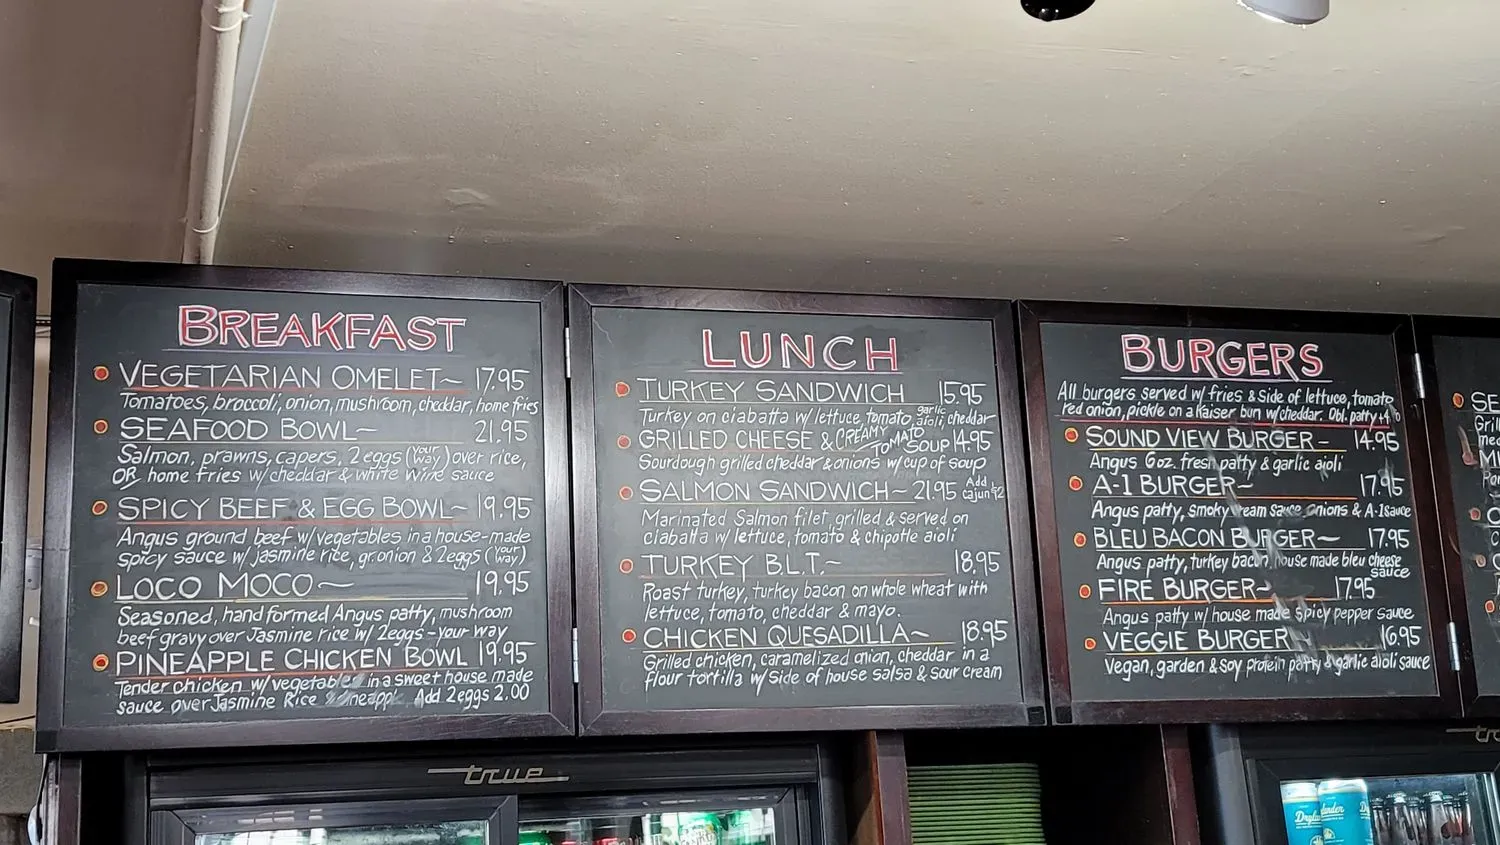 BREAKFAST
VEGETARIAN OMELET~ 17.95
Tomatoes, broccoli, onion, mushroom, cheddar, home fries
SEAFOOD BOWL~ 21.95
Salmon, prawns, capers, 2 eggs (your way) over rice,
OR home fries w/ cheddar & white wine sauce
SPICY BEEF & EGG BOWL~ 19.95
Angus ground beef w/ vegetables in a house-made
spicy sauce w/ jasmine rice, gr.onion & 2 eggs (your way)
LOCO MOCO~ 19.95
Seasoned, hand formed Angus patty, mushroom
beef gravy over Jasmine rice w/ 2eggs - your way
PINEAPPLE CHICKEN BOWL 19.95
Tender chicken w/ vegetables in a sweet house made
sauce over Jasmine Rice Add 2 eggs 2.00
LUNCH
TURKEY SANDWICH 15.95
Turkey on ciabatta w/ lettuce, tomato, garlic aioli, cheddar
GRILLED CHEESE & CREAMY TOMATO SOUP 14.95
Sourdough grilled cheddar & onions w/ cup of soup
SALMON SANDWICH~ 21.95 Add cajun $2
Marinated Salmon filet, grilled & served on
ciabatta w/ lettuce, tomato & chipotle aioli
TURKEY B.L.T.~ 18.95
Roast turkey, turkey bacon on whole wheat with
lettuce, tomato, cheddar & mayo.
CHICKEN QUESADILLA~ 18.95
Grilled chicken, caramelized onion, cheddar in a
flour tortilla w/ side of house salsa & sour cream
BURGERS
All burgers served w/ fries & side of lettuce, tomato
red onion, pickle on a Kaiser bun w/ cheddar. Dbl. patty +4
SOUND VIEW BURGER~ 14.95
Angus 6oz. fresh patty & garlic aioli
A-1 BURGER~ 17.95
Angus patty, smoky cream sauce, onions & A-1 sauce
BLEU BACON BURGER~ 17.95
Angus patty, turkey bacon, house made bleu cheese
sauce
FIRE BURGER~ 17.95
Angus patty w/ house made spicy pepper sauce
VEGGIE BURGER 16.95
Vegan, garden & soy protein patty & garlic aioli sauce
SE
true